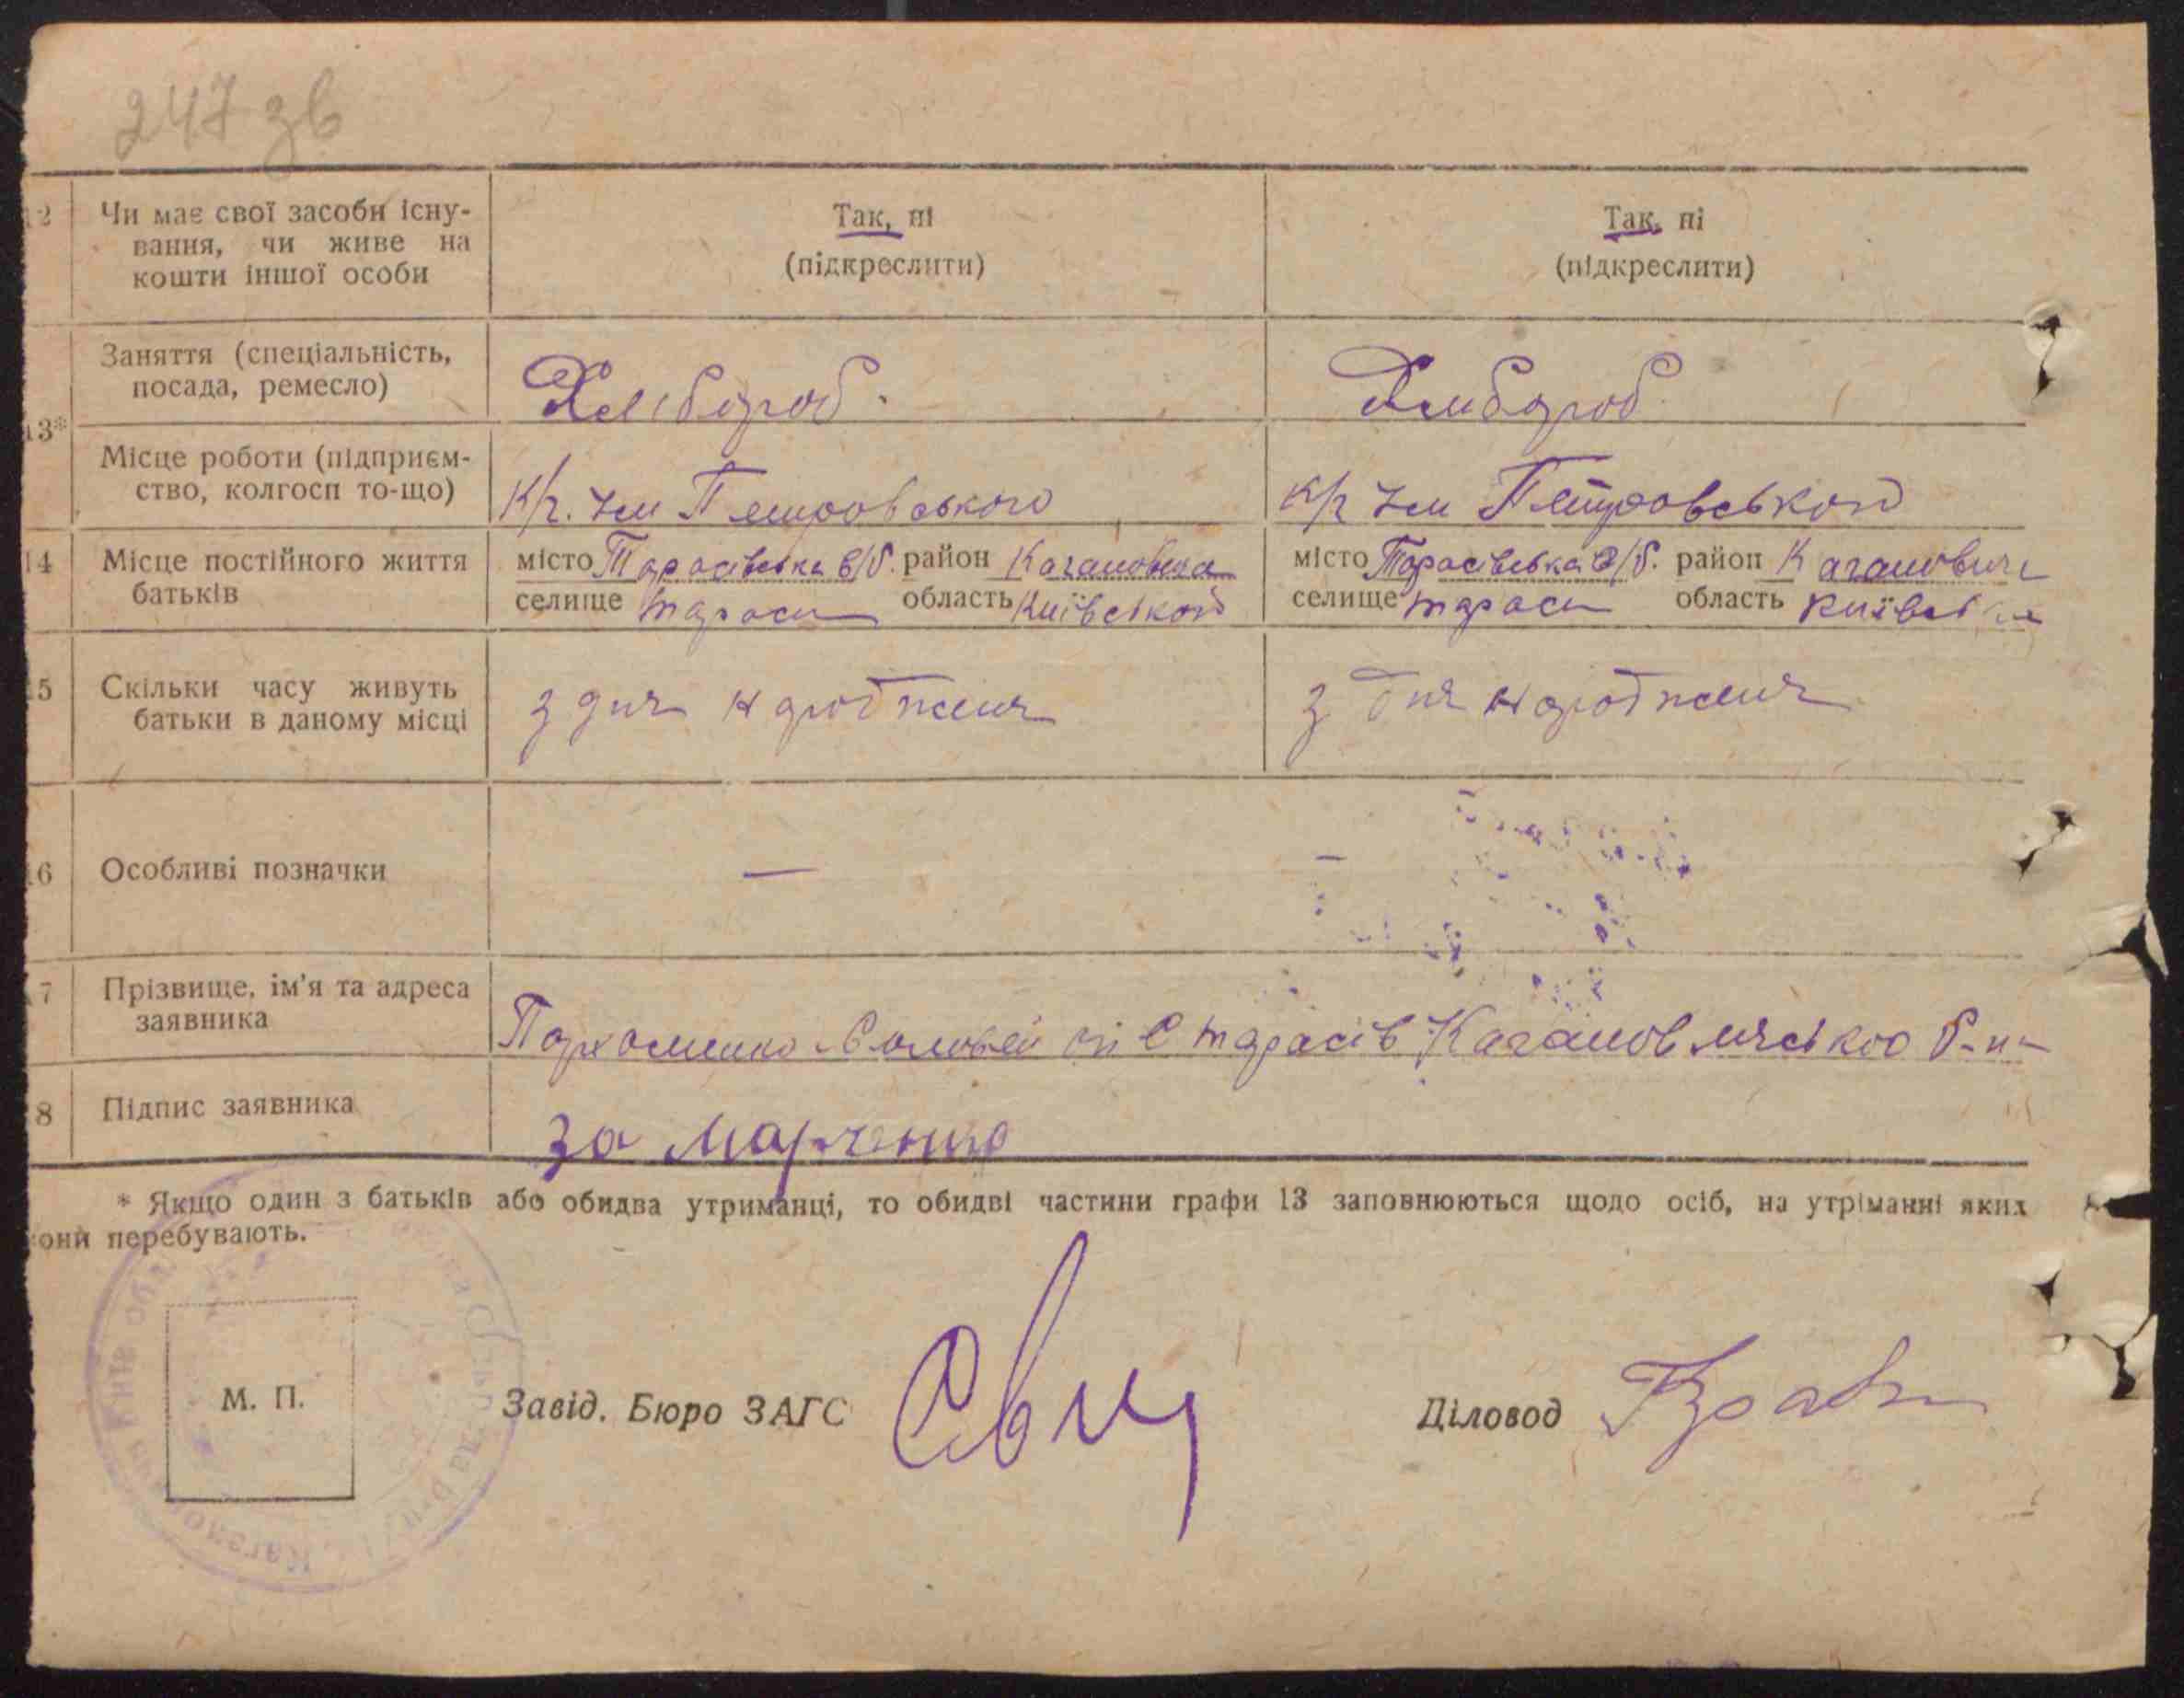 247 зв
12 Чи має свої засоби існу-
вання, чи живе на
кошти іншої особи
Так, ні
(підкреслити)
Так, ні
(підкреслити)
13*
Заняття (спеціальність,
посада, ремесло)
Хлібороб.
Хлибороб
Місце роботи (підприєм-
ство, колгосп то-що)
К/г. Ім Петровського
К/г Ім Петровського
14 Місце постійного життя
батьків
місто Тарасівська с/р. район Кагановича
селище тараси область Київської
місто Тарасівська с/р. район Кагановичі
селище тараси область Київська
15 Скільки часу живуть
батьки в даному місці
з дня народженя
з дня народженя
16 Особливі позначки
—
—
17 Прізвище, ім'я та адреса
заявника
Пархоменко с тарасів Кагановичського р-н
18 Підпис заявника
за Марченко
* Якщо один з батьків або обидва утриманці, то обидві частини графи 13 заповнюються щодо осіб, на утріманні яких
вони перебувають.
М. П.
Завід. Бюро ЗАГС
Діловод